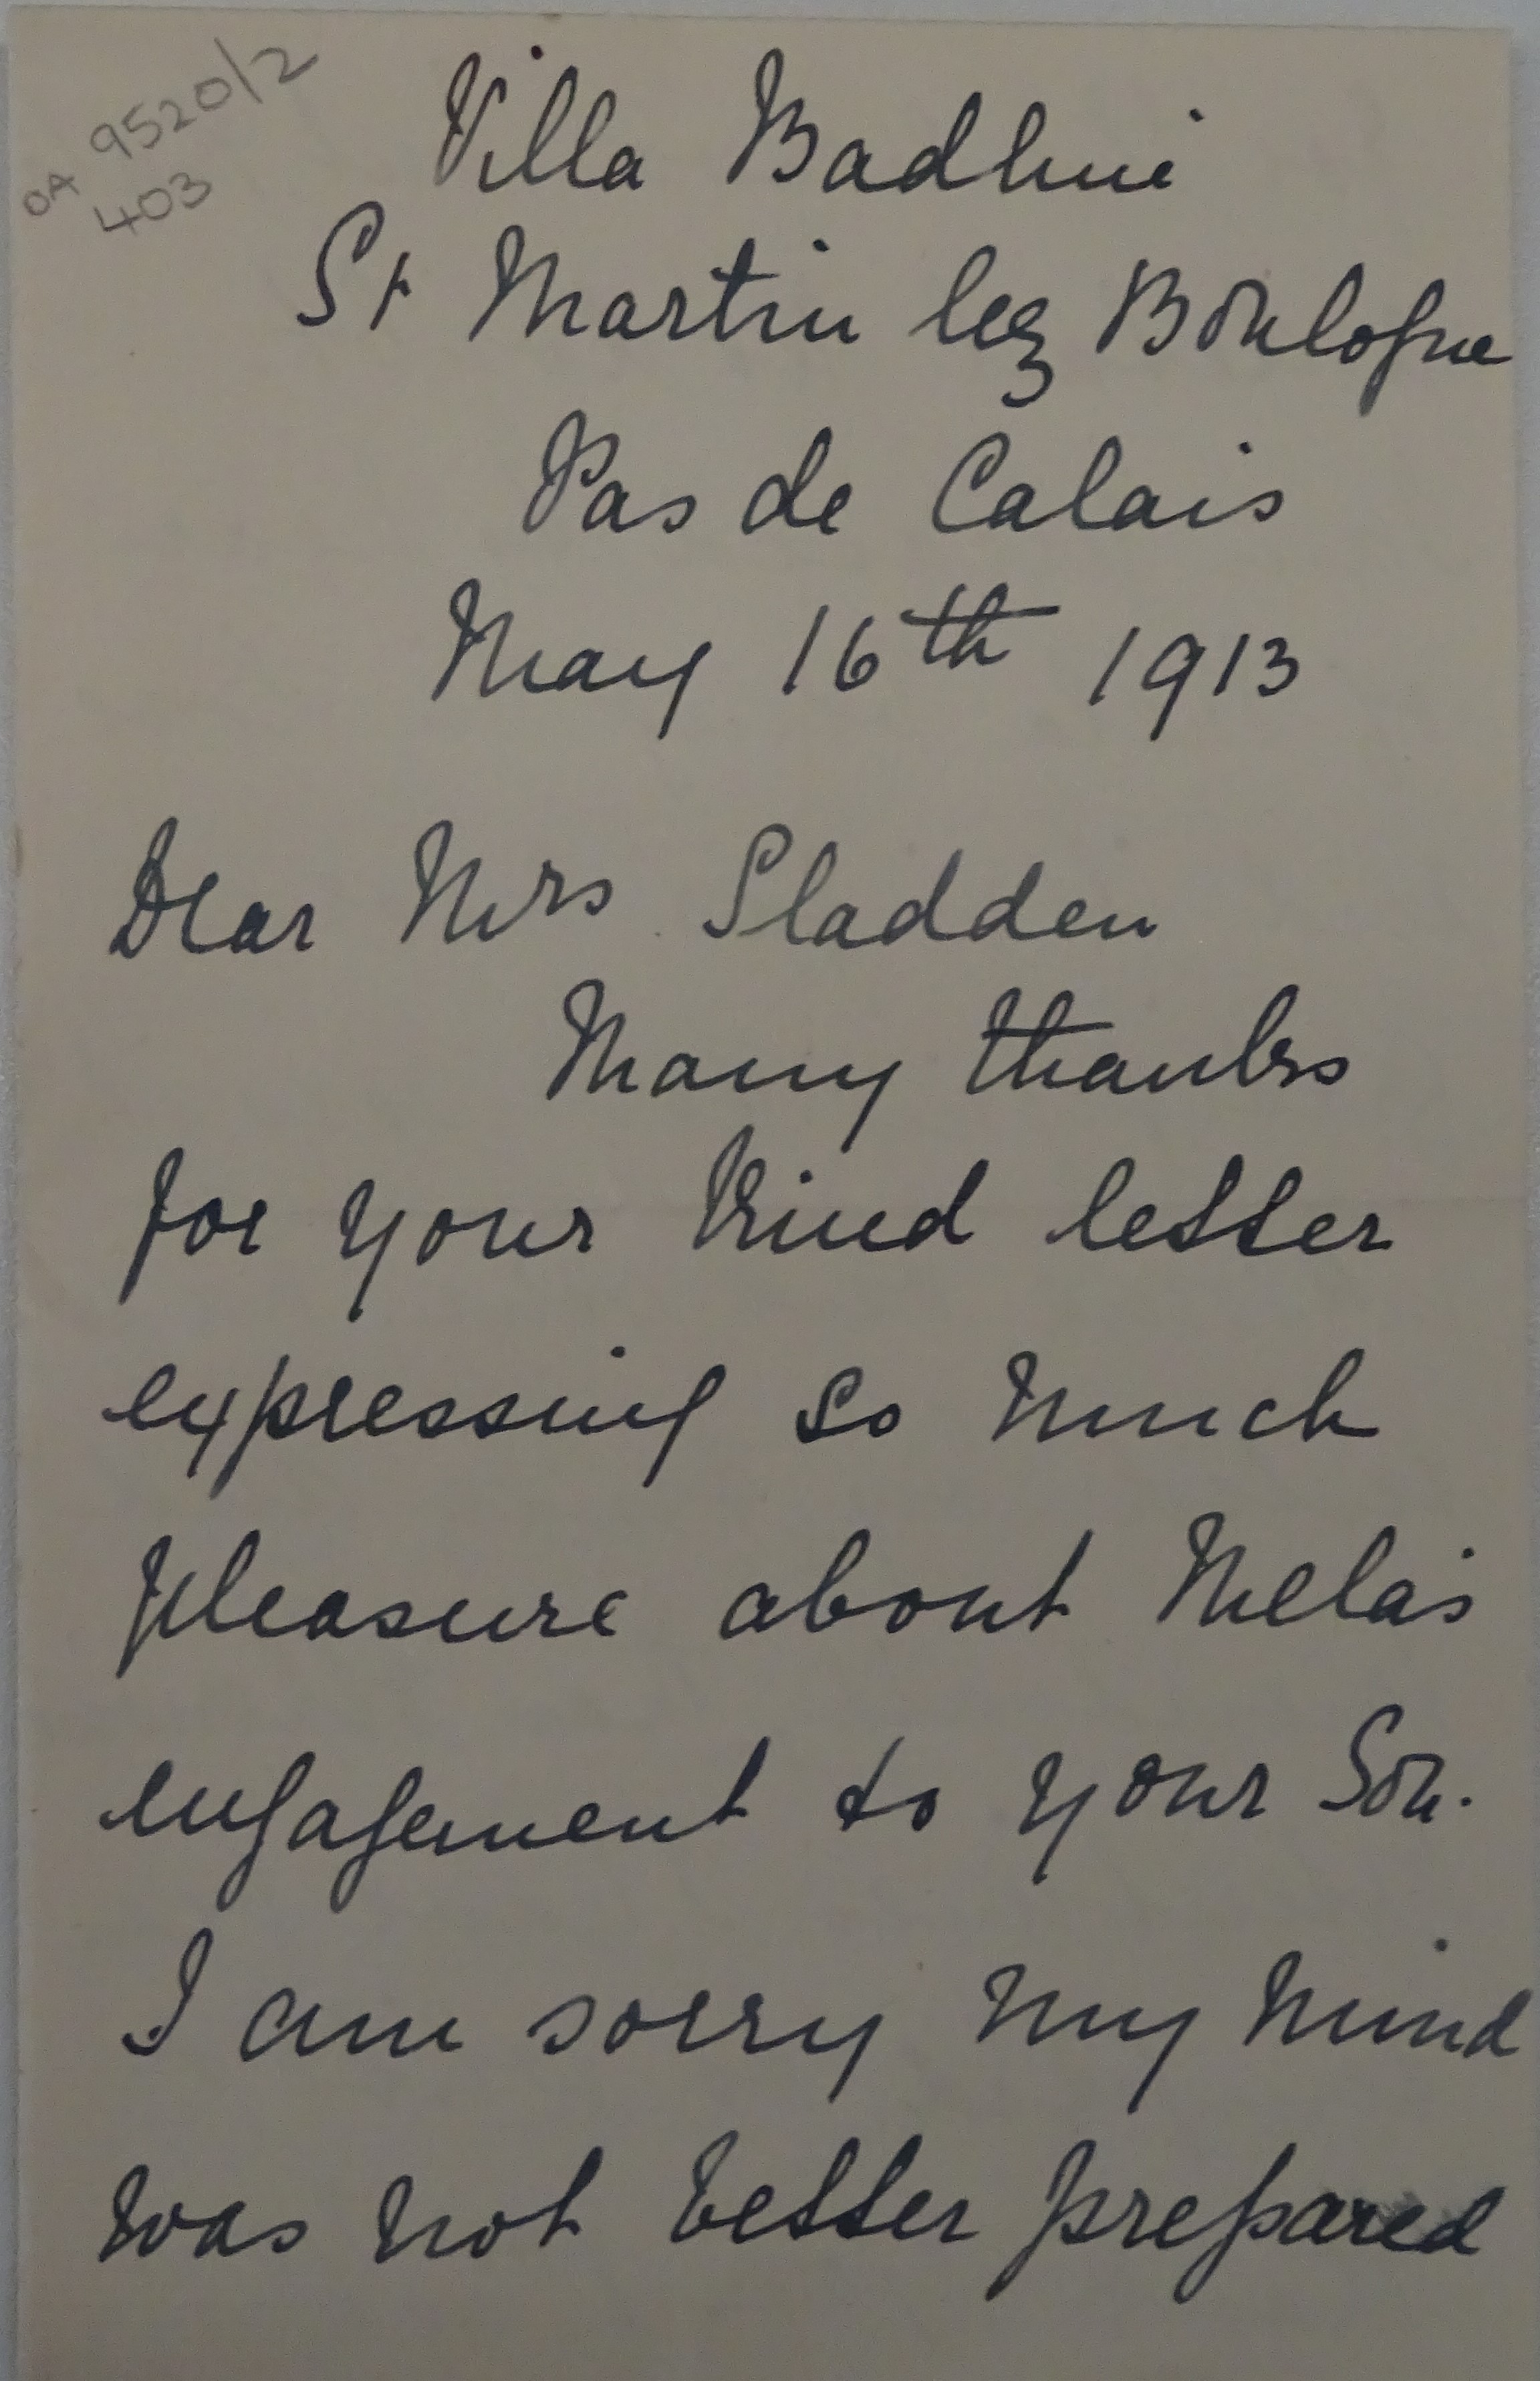 OA 9520/2
403
Villa
St Martin lez Boulogne
Pas de Calais
May 16th 1913
Dear Mrs Sladden
Many thanks
for your kind letter
expressing so much
pleasure about Mela's
engagement to your Son.
I am sorry my mind
was not better prepared